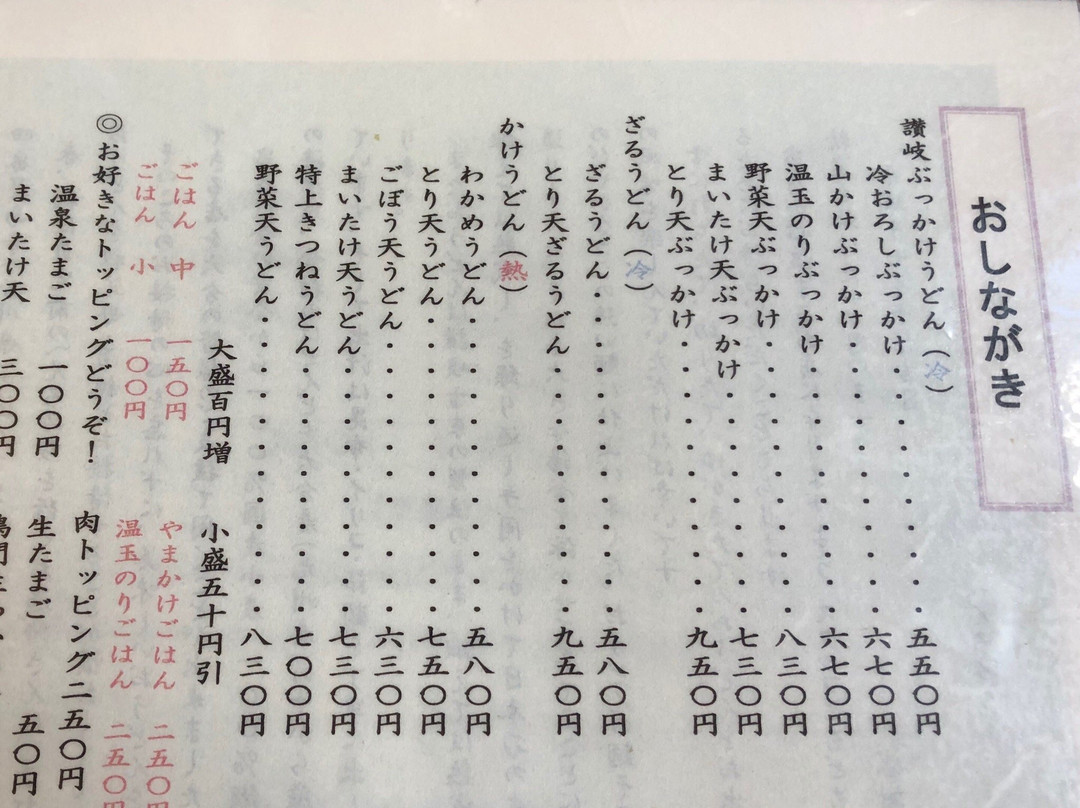 おしながき
讃岐ぶっかけうどん（冷）
冷おろしぶっかけ・・・・・・五五〇円
山かけぶっかけ・・・・・・六七〇円
温玉のりぶっかけ・・・・・・六七〇円
野菜天ぶっかけ・・・・・・八三〇円
まいたけ天ぶっかけ・・・・・七三〇円
とり天ぶっかけ・・・・・・九五〇円
ざるうどん（冷）
ざるうどん・・・・・・・五八〇円
とり天ざるうどん・・・・・・九五〇円
かけうどん（熱）
わかめうどん・・・・・・・五八〇円
とり天うどん・・・・・・・七五〇円
ごぼう天うどん・・・・・・六三〇円
まいたけ天うどん・・・・・・七三〇円
特上きつねうどん・・・・・・七〇〇円
野菜天うどん・・・・・・・八三〇円
大盛百円増　小盛五十円引
ごはん　中　一五〇円　やまかけごはん　二五〇円
ごはん　小　一〇〇円　温玉のりごはん　二五〇円
◎お好きなトッピングどうぞ！　肉トッピング二五〇円
温泉たまご　一〇〇円　生たまご　五〇円
まいたけ天　三〇〇円